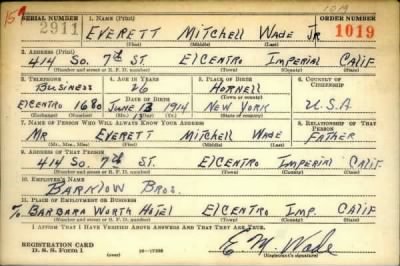 159 1019
SERIAL NUMBER 1. NAME (Print) ORDER NUMBER
2911 EVERETT MITCHELL WADE JR. 1019
(First) (Middle) (Last)
2. ADDRESS (Print)
414 SO. 7th ST. ELCENTRO IMPERIAL CALIF
(Number and street or R. F. D. number) (Town) (County) (State)
3. TELEPHONE 4. AGE IN YEARS 5. PLACE OF BIRTH 6. COUNTRY OF CITIZENSHIP
BUSINESS 26 HORNELL
DATE OF BIRTH (Town or county)
ELCENTRO 1680 JUNE 13 1914 NEW YORK U.S.A
(Exchange) (Number) (Mo.) (Day) (Yr.) (State or country)
7. NAME OF PERSON WHO WILL ALWAYS KNOW YOUR ADDRESS 8. RELATIONSHIP OF THAT PERSON
MR EVERETT MITCHELL WADE FATHER
(Mr., Mrs., Miss) (First) (Middle) (Last)
9. ADDRESS OF THAT PERSON
414 SO. 7th ST. ELCENTRO IMPERIAL CALIF.
(Number and street or R. F. D. number) (Town) (County) (State)
10. EMPLOYER'S NAME
BARKLOW BROS.
11. PLACE OF EMPLOYMENT OR BUSINESS
BARBARA WORTH HOTEL ELCENTRO IMP. CALIF
(Number and street or R. F. D. number) (Town) (County) (State)
I AFFIRM THAT I HAVE VERIFIED ABOVE ANSWERS AND THAT THEY ARE TRUE.
REGISTRATION CARD
D. S. S. Form 1 E. M. Wade
(Registrant's signature)